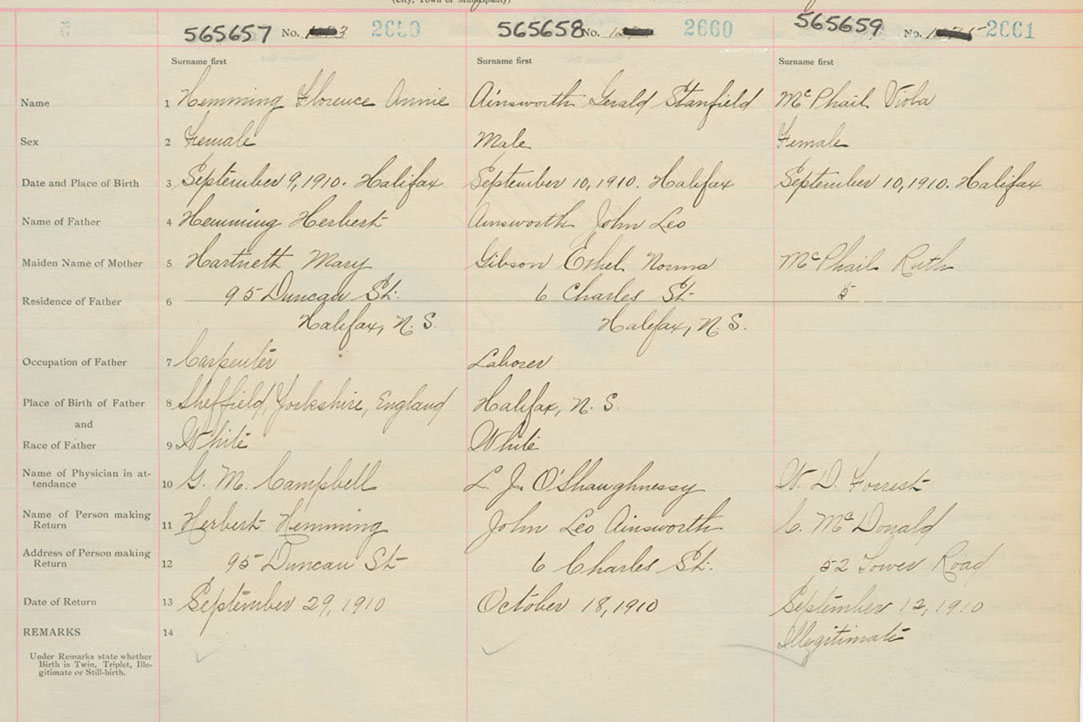 (City, Town or Municipality)
565657 No. 2659
565658 No. 2660
565659 No. 2661
Surname first Surname first Surname first
Name 1 Hemming Florence Annie Ainsworth Gerald Stanfield McPhail Viola
Sex 2 Female Male Female
Date and Place of Birth 3 September 9, 1910. Halifax September 10, 1910. Halifax September 10, 1910. Halifax
Name of Father 4 Hemming Herbert Ainsworth John Leo
Maiden Name of Mother 5 Hartnett Mary Gibson Ethel Norma McPhail Ruth
Residence of Father 6 95 Duncan St. 6 Charles St. 5
Halifax, N. S. Halifax, N. S.
Occupation of Father 7 Carpenter Laborer
Place of Birth of Father 8 Sheffield, Yorkshire, England Halifax, N. S.
and
Race of Father 9 White White
Name of Physician in at-
tendance 10 G. M. Campbell L. J. O'Shaughnessy W. D. Forrest
Name of Person making
Return 11 Herbert Hemming John Leo Ainsworth C. McDonald
Address of Person making
Return 12 95 Duncan St 6 Charles St. 52 Tower Road
Date of Return 13 September 29, 1910 October 18, 1910 September 12, 1910
REMARKS 14 Illegitimate
Under Remarks state whether
Birth is Twin, Triplet, Ille-
gitimate or Still-birth.